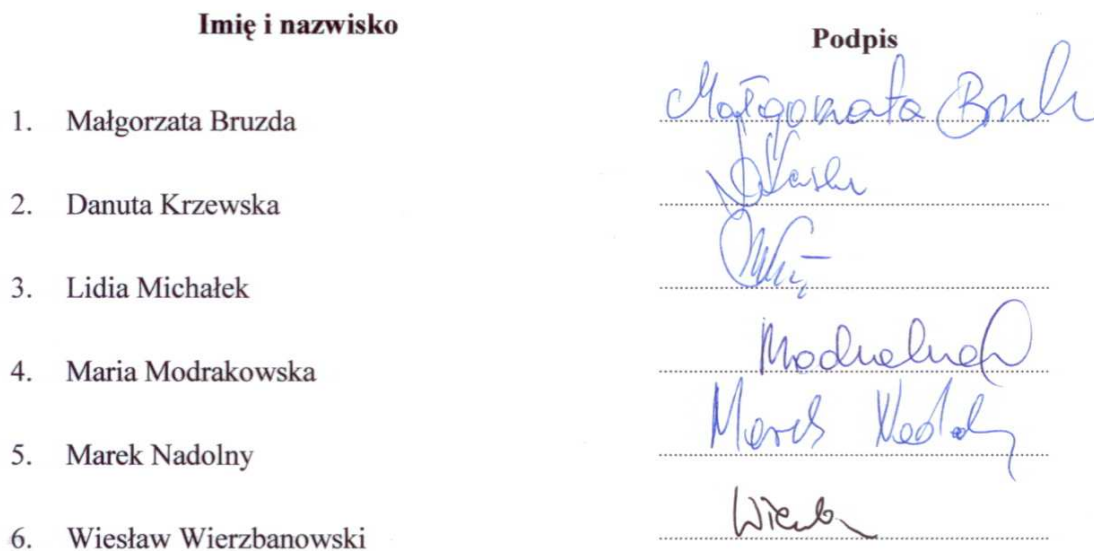 Imię i nazwisko
Podpis
1. Małgorzata Bruzda
Małgorzata
2. Danuta Krzewska
3. Lidia Michałek
4. Maria Modrakowska
5. Marek Nadolny
Marek
6. Wiesław Wierzbanowski